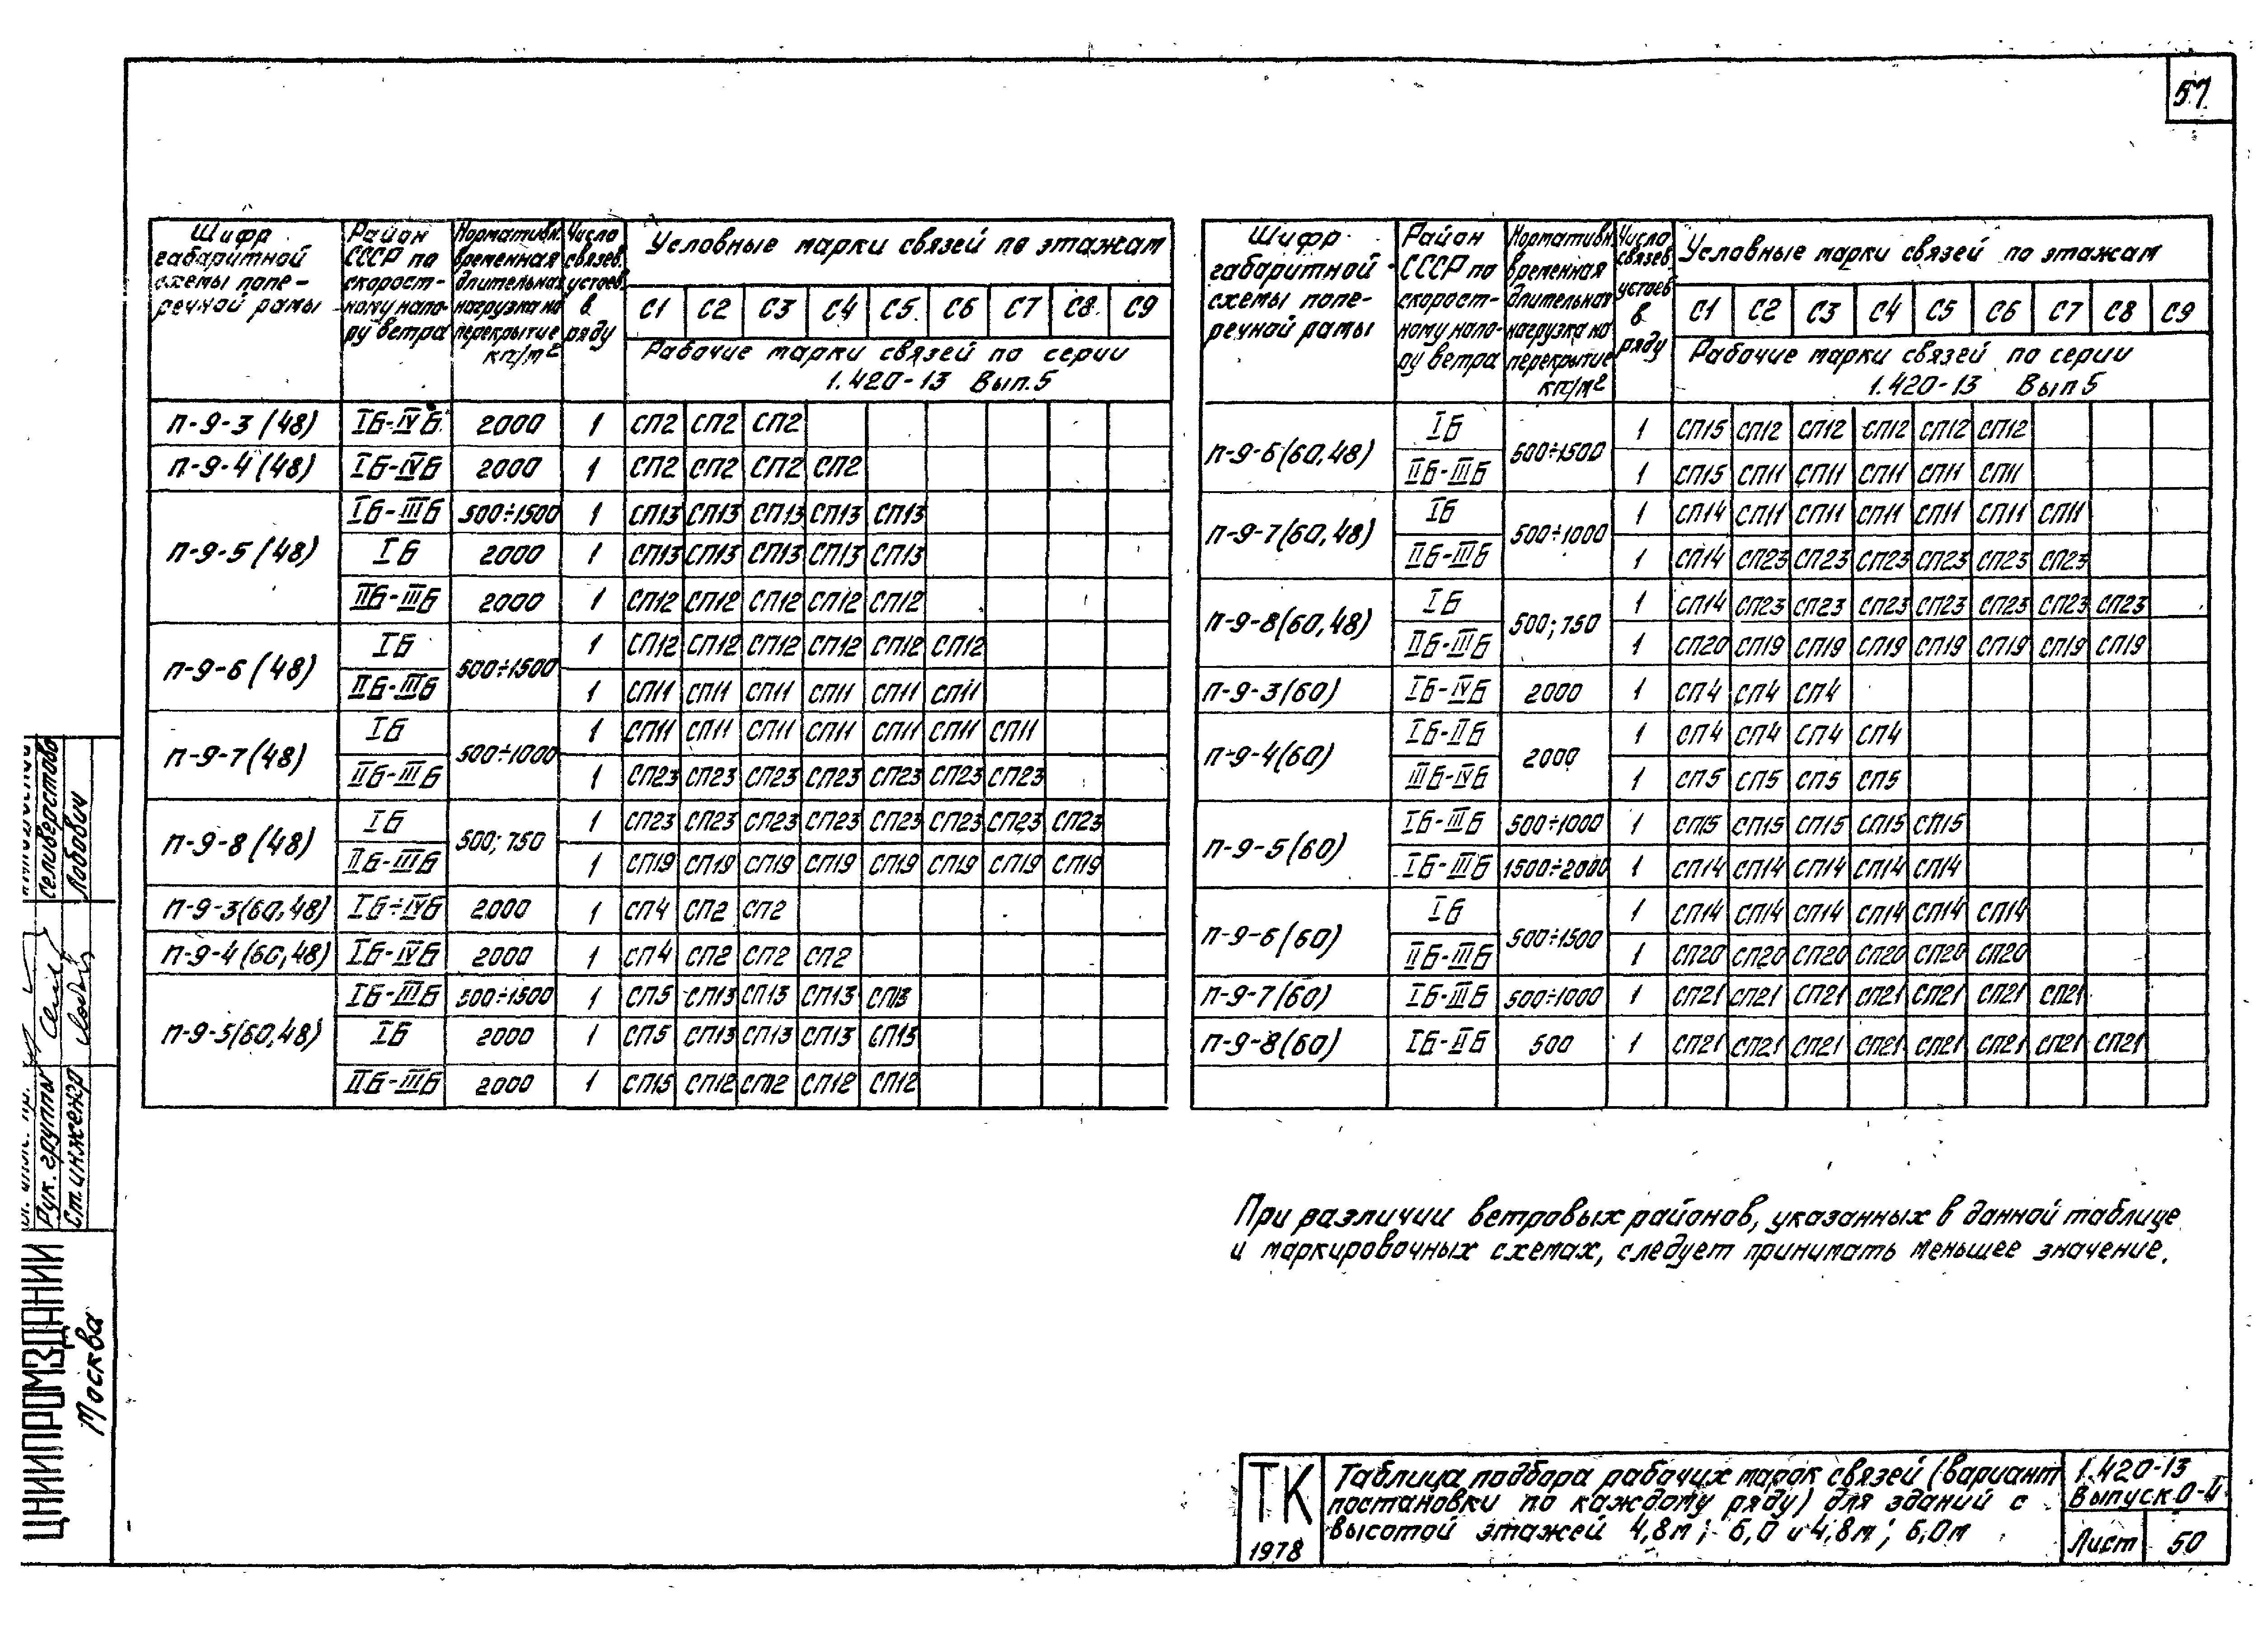 57
Шифр габаритной схемы поперечной рамы | Район СССР по скоростному напору ветра | Нормативн. временная длительная нагрузка на перекрытие кгс/м² | Число связев. устоев в ряду | Условные марки связей по этажам
С1 | С2 | С3 | С4 | С5 | С6 | С7 | С8 | С9
Рабочие марки связей по серии
1.420-13 Вып.5
П-9-3 (48) | IБ-IVБ | 2000 | 1 | СП2 | СП2 | СП2
П-9-4 (48) | IБ-IVБ | 2000 | 1 | СП2 | СП2 | СП2 | СП2
П-9-5 (48) | IБ-IIIБ | 500÷1500 | 1 | СП13 | СП13 | СП13 | СП13 | СП13
IБ | 2000 | 1 | СП13 | СП13 | СП13 | СП13 | СП13
IIБ-IIIБ | 2000 | 1 | СП12 | СП12 | СП12 | СП12 | СП12
П-9-6 (48) | IБ | 500÷1500 | 1 | СП12 | СП12 | СП12 | СП12 | СП12 | СП12
IIБ-IIIБ | 1 | СП11 | СП11 | СП11 | СП11 | СП11 | СП11
П-9-7 (48) | IБ | 500÷1000 | 1 | СП11 | СП11 | СП11 | СП11 | СП11 | СП11 | СП11
IIБ-IIIБ | 1 | СП23 | СП23 | СП23 | СП23 | СП23 | СП23 | СП23
П-9-8 (48) | IБ | 500; 750 | 1 | СП23 | СП23 | СП23 | СП23 | СП23 | СП23 | СП23 | СП23
IIБ-IIIБ | 1 | СП19 | СП19 | СП19 | СП19 | СП19 | СП19 | СП19 | СП19
П-9-3(60,48) | IБ÷IVБ | 2000 | 1 | СП4 | СП2 | СП2
П-9-4 (60,48) | IБ-IVБ | 2000 | 1 | СП4 | СП2 | СП2 | СП2
П-9-5(60,48) | IБ-IIIБ | 500÷1500 | 1 | СП5 | СП13 | СП13 | СП13 | СП13
IБ | 2000 | 1 | СП5 | СП13 | СП13 | СП13 | СП13
IIБ-IIIБ | 2000 | 1 | СП15 | СП12 | СП12 | СП12 | СП12
Шифр габаритной схемы поперечной рамы | Район СССР по скоростному напору ветра | Нормативн. временная длительная нагрузка на перекрытие кгс/м² | Число связев. устоев в ряду | Условные марки связей по этажам
С1 | С2 | С3 | С4 | С5 | С6 | С7 | С8 | С9
Рабочие марки связей по серии
1.420-13 Вып 5
П-9-6(60,48) | IБ | 500÷1500 | 1 | СП15 | СП12 | СП12 | СП12 | СП12 | СП12
IIБ-IIIБ | 1 | СП15 | СП11 | СП11 | СП11 | СП11 | СП11
П-9-7(60,48) | IБ | 500÷1000 | 1 | СП14 | СП11 | СП11 | СП11 | СП11 | СП11 | СП11
IIБ-IIIБ | 1 | СП14 | СП23 | СП23 | СП23 | СП23 | СП23 | СП23
П-9-8(60,48) | IБ | 500; 750 | 1 | СП14 | СП23 | СП23 | СП23 | СП23 | СП23 | СП23 | СП23
IIБ-IIIБ | 1 | СП20 | СП19 | СП19 | СП19 | СП19 | СП19 | СП19 | СП19
П-9-3(60) | IБ-IVБ | 2000 | 1 | СП4 | СП4 | СП4
П-9-4(60) | IБ-IIБ | 2000 | 1 | СП4 | СП4 | СП4 | СП4
IIIБ-IVБ | 1 | СП5 | СП5 | СП5 | СП5
П-9-5(60) | IБ-IIIБ | 500÷1000 | 1 | СП15 | СП15 | СП15 | СП15 | СП15
IБ-IIIБ | 1500÷2000 | 1 | СП14 | СП14 | СП14 | СП14 | СП14
П-9-6(60) | IБ | 500÷1500 | 1 | СП14 | СП14 | СП14 | СП14 | СП14 | СП14
IIБ-IIIБ | 1 | СП20 | СП20 | СП20 | СП20 | СП20 | СП20
П-9-7(60) | IБ-IIIБ | 500÷1000 | 1 | СП21 | СП21 | СП21 | СП21 | СП21 | СП21 | СП21
П-9-8(60) | IБ-IIБ | 500 | 1 | СП21 | СП21 | СП21 | СП21 | СП21 | СП21 | СП21 | СП21
При различии ветровых районов, указанных в данной таблице
и маркировочных схемах, следует принимать меньшее значение.
ТК
1978
Таблица подбора рабочих марок связей (вариант
постановки по каждому ряду) для зданий с
высотой этажей 4,8м; 6,0 и 4,8м; 6,0м
1.420-13
Выпуск 0-4
Лист 50
ЦНИИПРОМЗДАНИЙ
Москва
Рук. группы Селиверстова
Ст. инженер Лобович